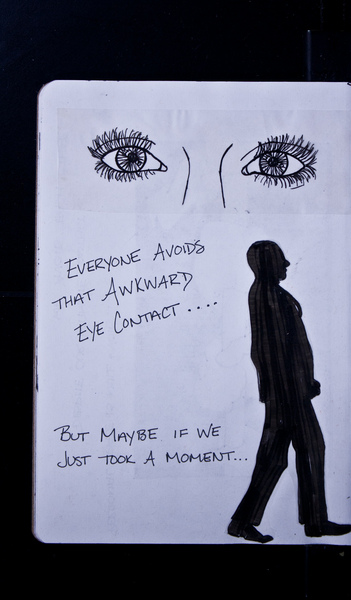 Everyone Avoids
that Awkward
Eye Contact ....
But Maybe if we
just took a moment...